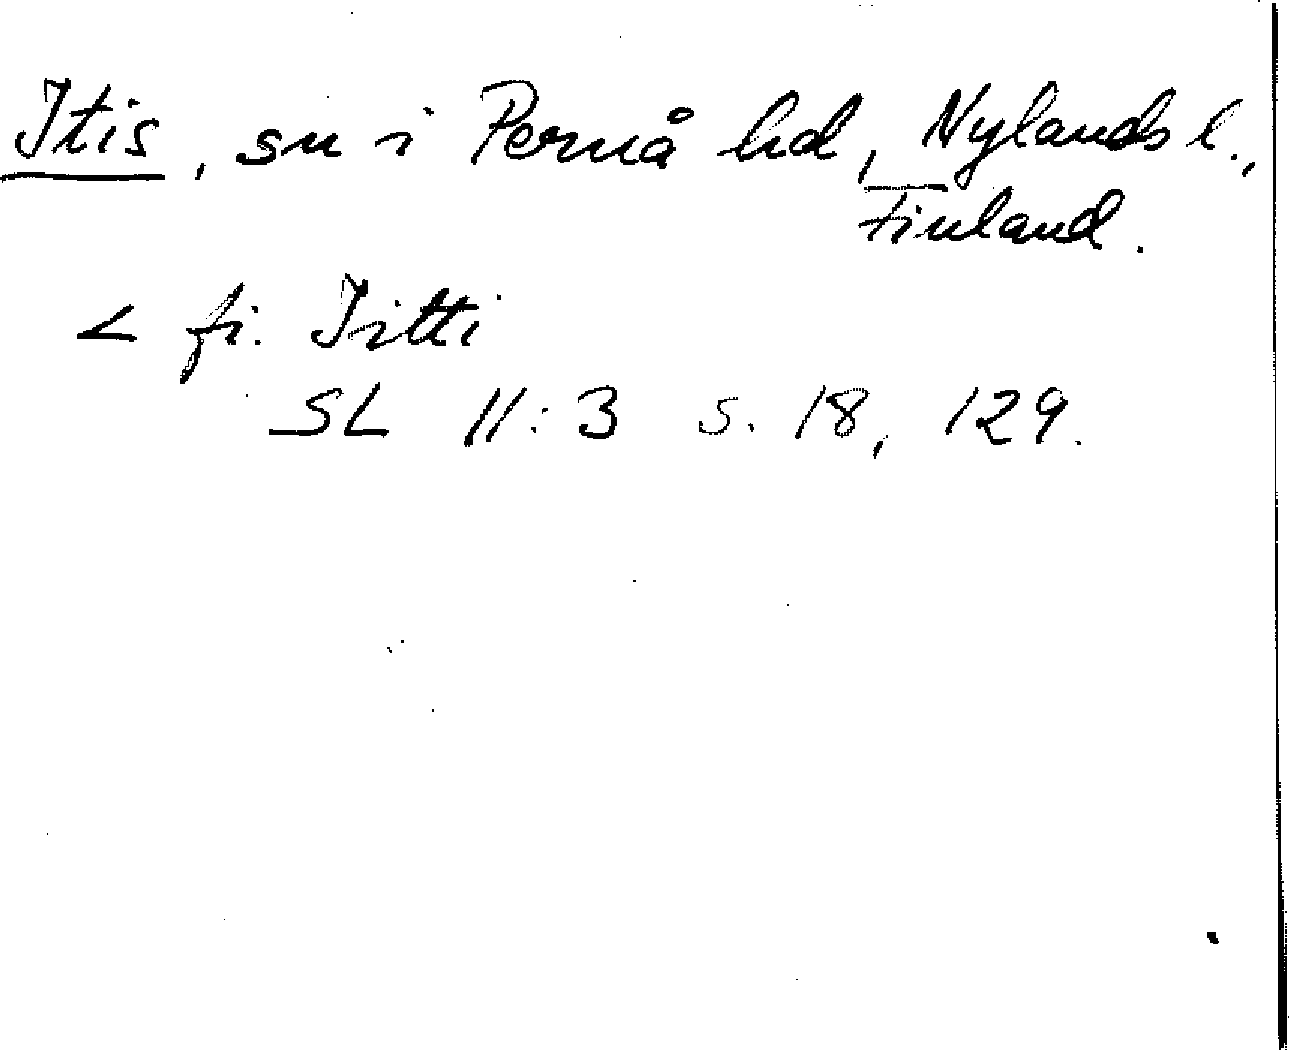 Itis, sn i Pernå hd, Nylands l.,
Finland.
< fi. Iitti
SL 11:3 s. 18, 129.